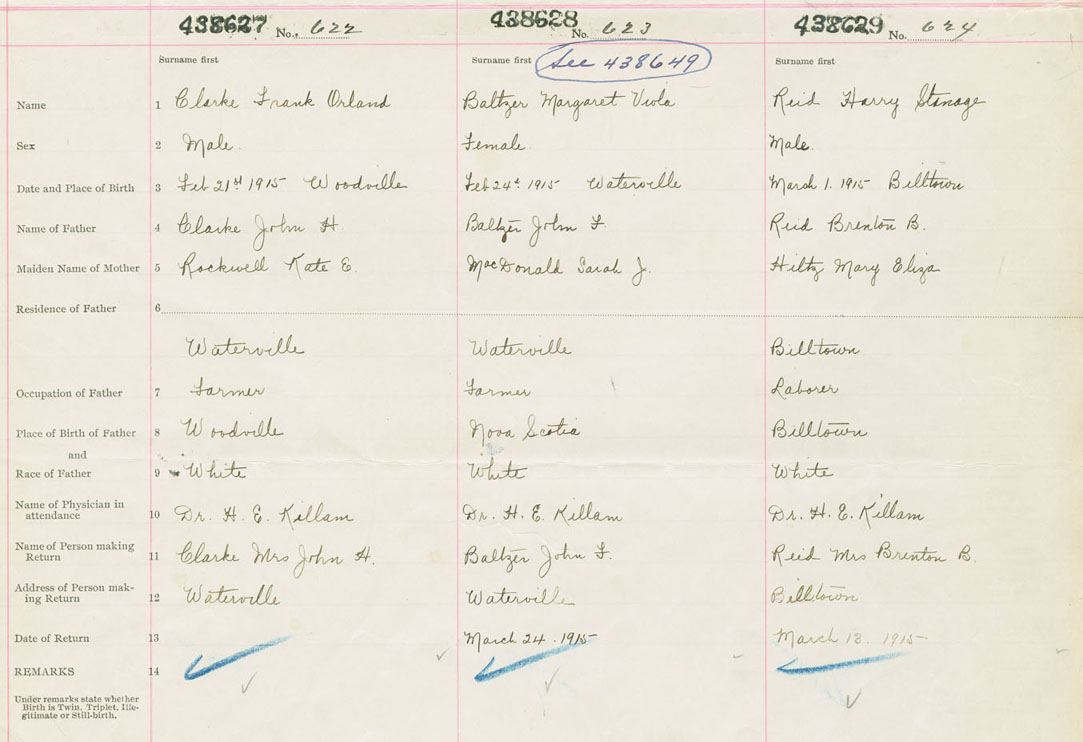 438627 No. 622 438628 No. 623 438629 No. 624
Surname first Surname first See 438649 Surname first
Name 1 Clarke Frank Orland Baltzer Margaret Viola Reid Harry Stanage
Sex 2 Male. Female. Male.
Date and Place of Birth 3 Feb 21st 1915 Woodville Feb 24th 1915 Waterville March 1. 1915 Billtown
Name of Father 4 Clarke John H. Baltzer John F. Reid Brenton B.
Maiden Name of Mother 5 Rockwell Kate E. MacDonald Sarah J. Hiltz Mary Eliza
Residence of Father 6
Waterville Waterville Billtown
Occupation of Father 7 Farmer Farmer Laborer
Place of Birth of Father 8 Woodville Nova Scotia Billtown
and
Race of Father 9 White White White
Name of Physician in
attendance 10 Dr. H. E. Killam Dr. H. E. Killam Dr. H. E. Killam
Name of Person making
Return 11 Clarke Mrs John H. Baltzer John F. Reid Mrs Brenton B.
Address of Person mak-
ing Return 12 Waterville Waterville Billtown
Date of Return 13 March 24. 1915 March 18. 1915
REMARKS 14
Under remarks state whether
Birth is Twin, Triplet, Ille-
gitimate or Still-birth.